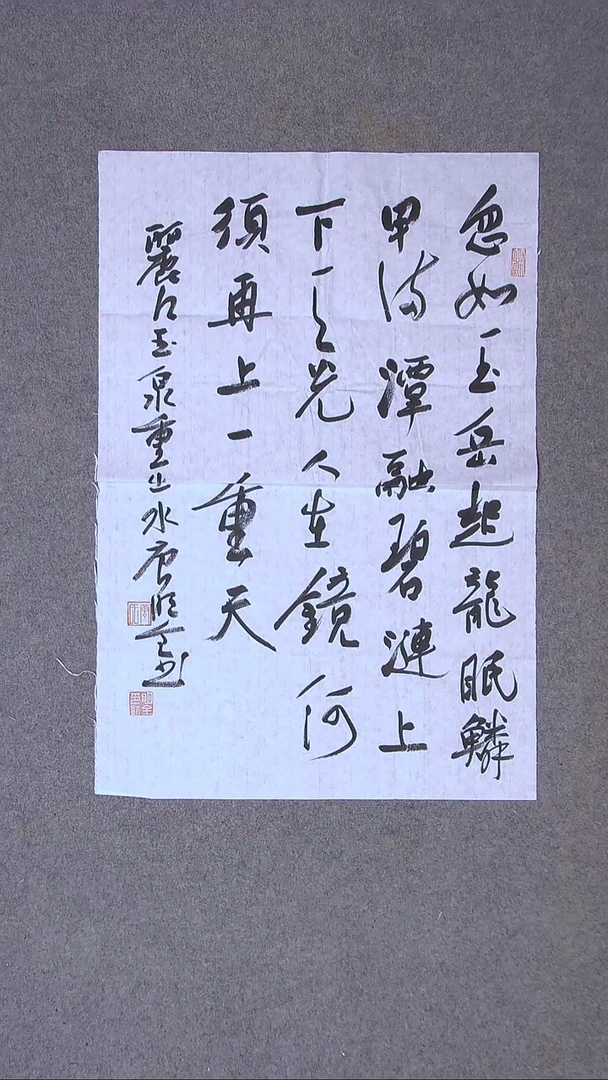 忽如玉岳起龍眠鱗
甲滿潭融碧漣上
下天光人在鏡何
須再上一重天
麗江玉泉重出水唐明全書